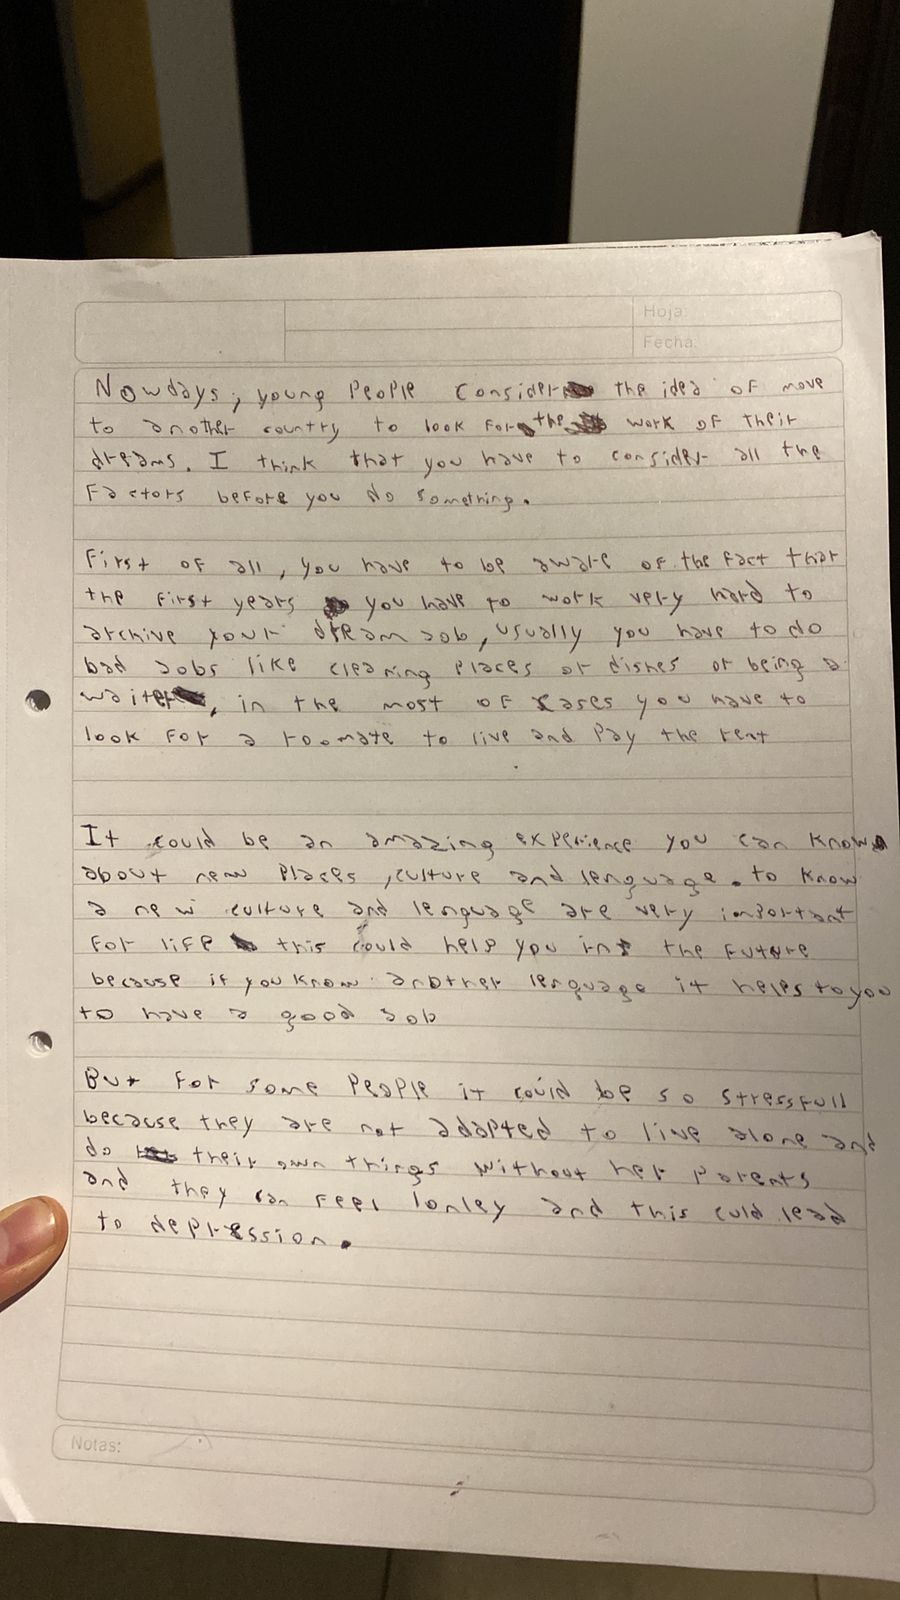 Hoja:
Fecha:
Nowdays, young People consider the idea of move
to another country to look for the work of their
dreams. I think that you have to consider all the
Factors before you do something.
First of all, you have to be aware of the fact that
the first years you have to work very hard to
archive your dream Job, usually you have to do
bad Jobs like cleaning Places or dishes or being a
waiter, in the most of cases you have to
look for a roomate to live and Pay the rent
It could be an amazing experience you can know
about new Places, culture and lenguage. to know
a new culture and lenguage are very important
for life this could help you in the future
because if you know another lenguage it helps to you
to have a good Job
But for some People it could be so stressfull
because they are not adapted to live alone and
do their own things without her Parents
and they can feel lonley and this culd lead
to depression.
Notas: